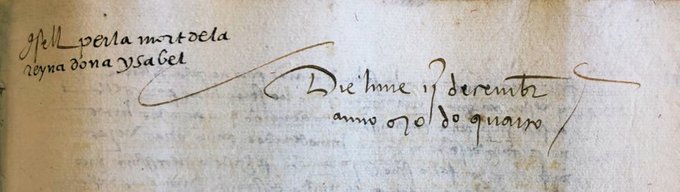 consell per la mort de la
reyna dona ysabel
Die lune ij decembr
anno MD quarto